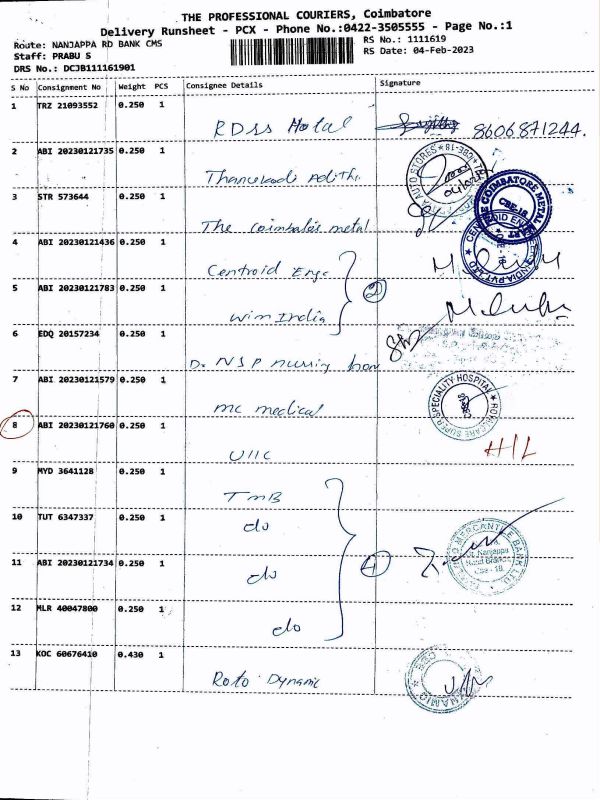 THE PROFESSIONAL COURIERS, Coimbatore
Delivery Runsheet - PCX - Phone No.:0422-3505555 - Page No.:1
Route: NANJAPPA RD BANK CMS
RS No.: 1111619
Staff: PRABU S
RS Date: 04-Feb-2023
DRS No.: DCJB111161901
S No Consignment No Weight PCS Consignee Details Signature
1 TRZ 21093552 0.250 1
RDSS Hotal 8606871244.
2 ABI 20230121735 0.250 1
3 STR 573644 0.250 1
The coimbatore metal
4 ABI 20230121436 0.250 1
Centroid Engc
5 ABI 20230121783 0.250 1
2
Win India
6 EDQ 20157234 0.250 1
Dr NSP nursing hom
7 ABI 20230121579 0.250 1
mc medical
ROYALCARE SUPER SPECIALITY HOSPITAL
8 ABI 20230121760 0.250 1
UIIC H/L
9 MYD 3641128 0.250 1
TMB
10 TUT 6347337 0.250 1
do
11 ABI 20230121734 0.250 1
4
do
12 MLR 40047800 0.250 1
do
13 KOC 60676410 0.430 1
Roto Dynamic